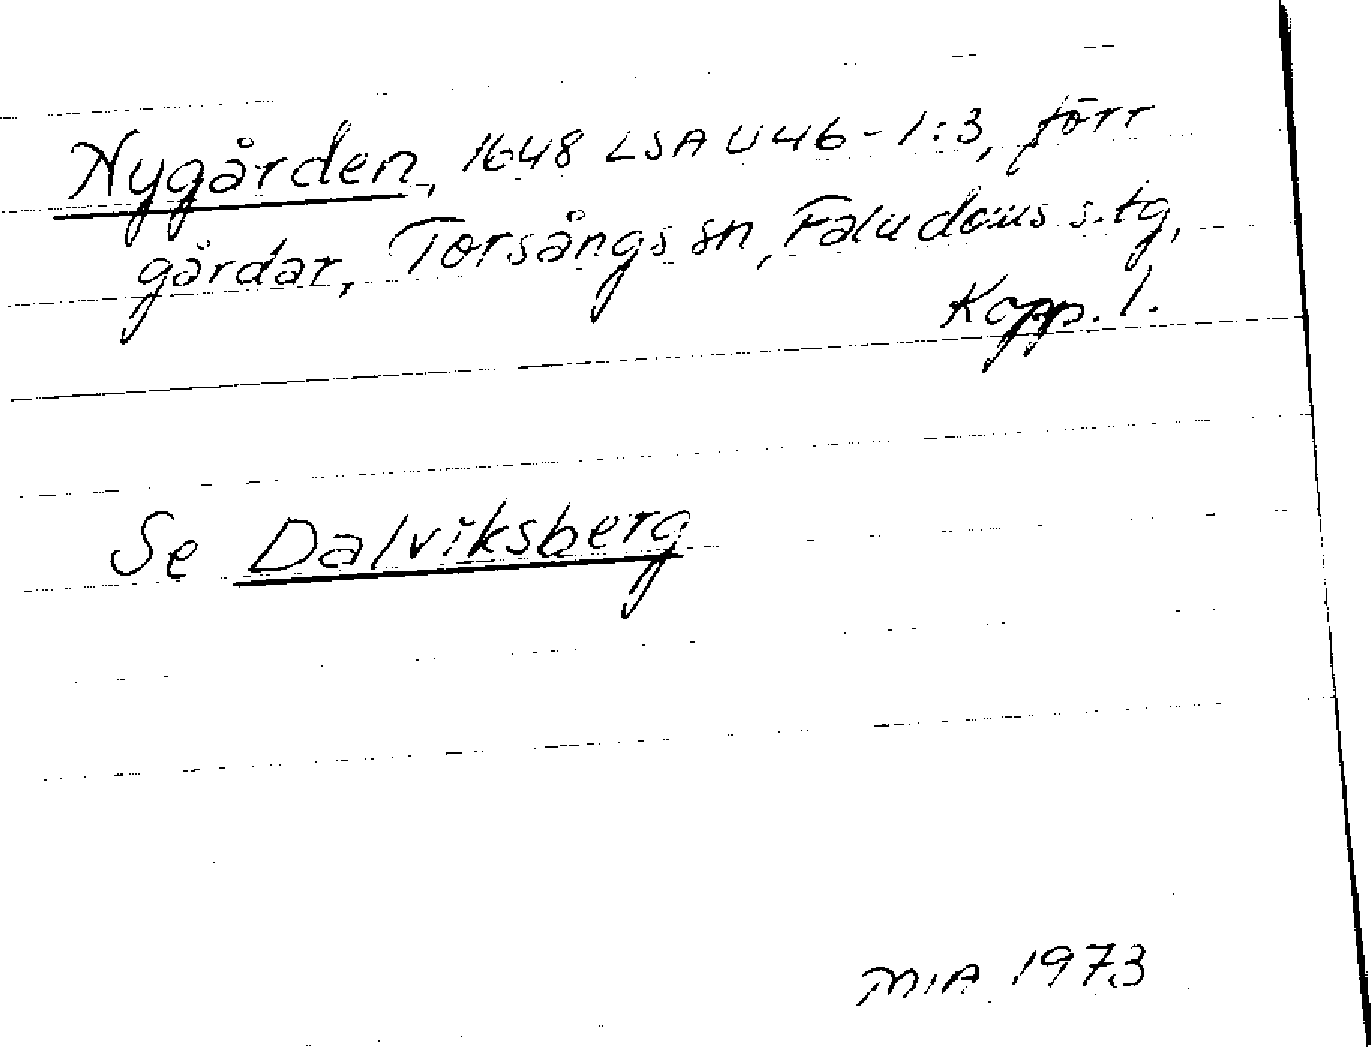 Nygården, 1648 LSA U46-1:3, förr
gårdar, Torsångs sn, Falu doms.tg,
Kopp. l.
Se Dalviksberg
MIA 1973